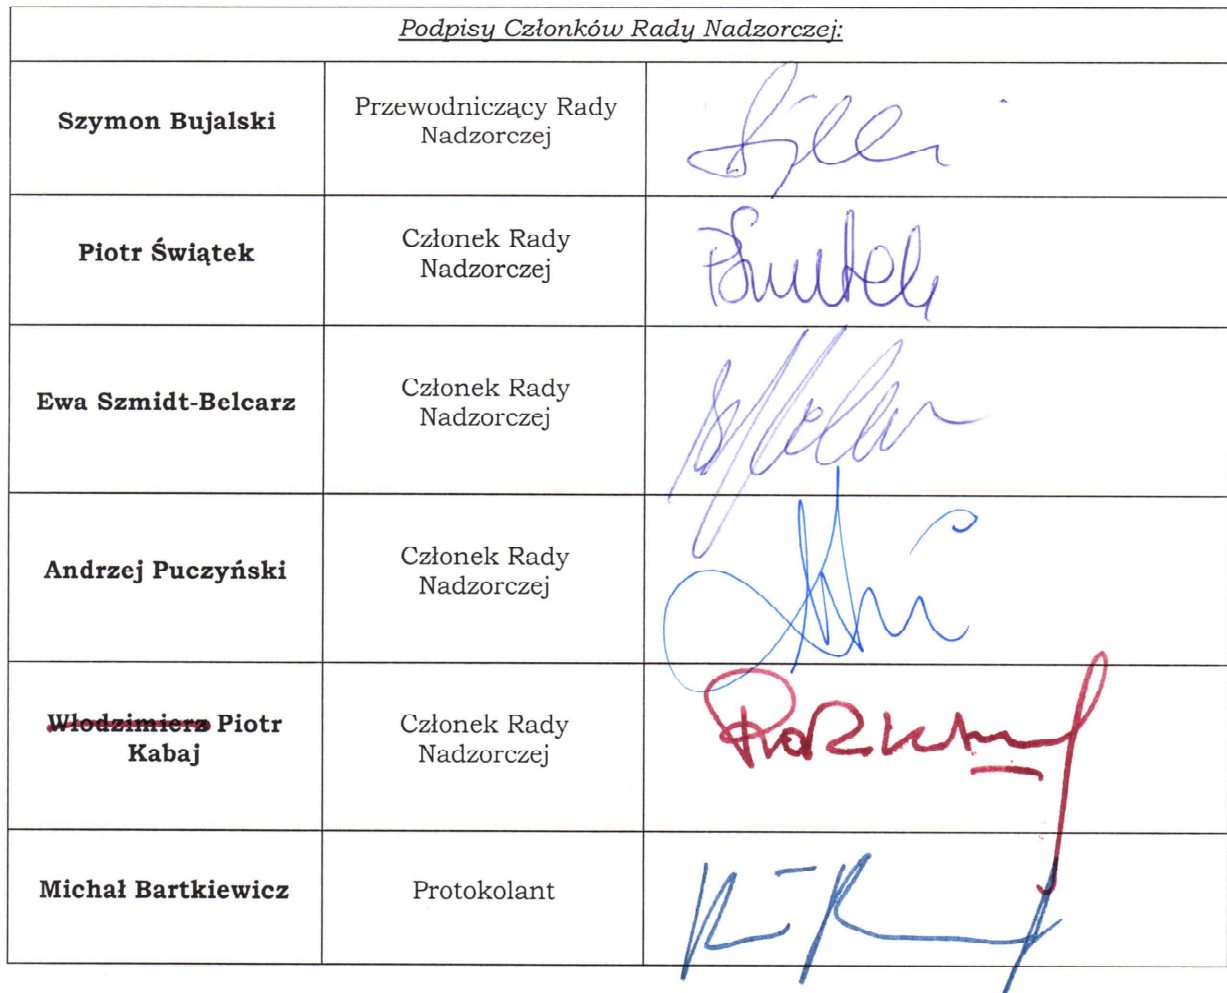 Podpisy Członków Rady Nadzorczej:
Szymon Bujalski
Przewodniczący Rady
Nadzorczej
Piotr Świątek
Członek Rady
Nadzorczej
Ewa Szmidt-Belcarz
Członek Rady
Nadzorczej
Andrzej Puczyński
Członek Rady
Nadzorczej
Włodzimierz Piotr
Kabaj
Członek Rady
Nadzorczej
Michał Bartkiewicz
Protokolant